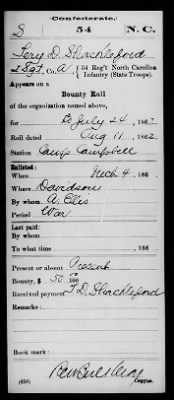 (Confederate.)
S 54 N.C.
Tery D. Shackleford
2 Sgt, Co. A, 54 Reg't North Carolina
Infantry (State Troops).
Appears on a
Bounty Roll
of the organization named above,
for to July 24, 1862
Roll dated Aug 11, 1862
Station Camp Campbell
Enlisted:
When Mch 4, 186
Where Davidson
By whom A. Ellis
Period War
Last paid:
By whom
To what time , 186
Present or absent Present
Bounty, $ 50 00/100
Received payment T. D. Shackleford
Remarks:
Book mark:
(656) Copyist.